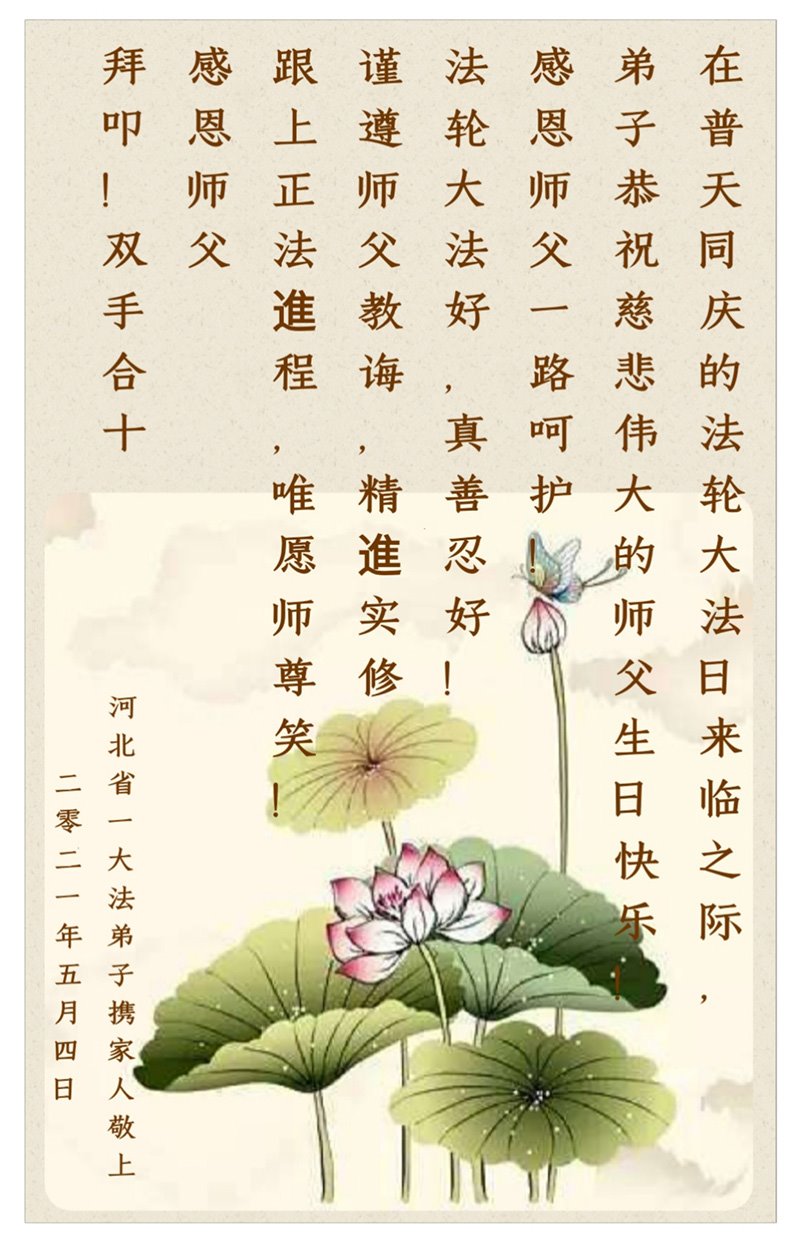 在普天同庆的法轮大法日来临之际，
弟子恭祝慈悲伟大的师父生日快乐！
感恩师父一路呵护！
法轮大法好，真善忍好！
谨遵师父教诲，精進实修
跟上正法進程，唯愿师尊笑！
感恩师父
拜叩！双手合十
河北省一大法弟子携家人敬上
二零二一年五月四日